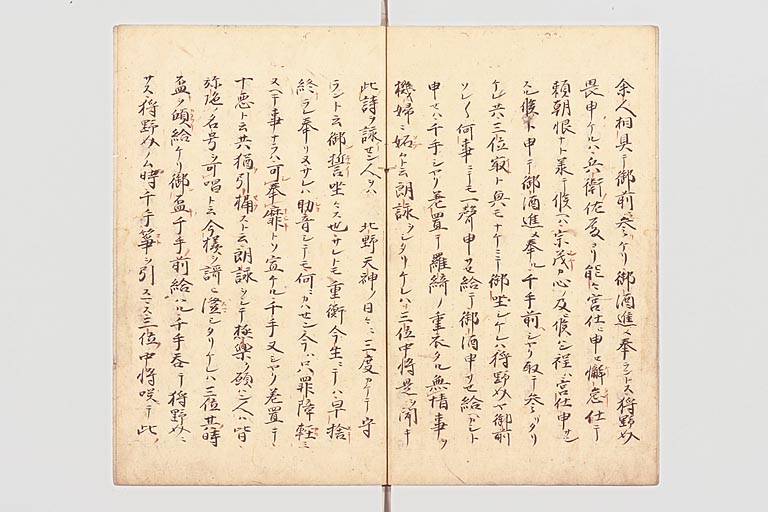 余人相具テ御前ニ参ケリ御酒進メ奉ラントス狩野介
畏申ケルハ兵衛佐殿ヨリ能々宮仕ヒ申セ懈怠仕テ
頼朝恨ナト承テ候ヘハ宗茂カ心ノ及候ハン程ハ宮仕申サン
スル候ト申テ御酒進メ奉ル千手前シヤク取テ参ラタリ
ケレ共三位最ト興モナケニテ御坐シケレハ狩野介や御前
ソレ〳〵何事ニテモ一聲申サセ給テ御酒申サセ給ヘカシト
申セハ千手シヤク差置テ羅綺ノ重衣タル無情事ヲ
機婦ニ妬ト云朗詠ヲシタリケレハ三位中将是ヲ聞キ
此詩ヲ詠セン人ヲハ 北野天神ノ日々ニ三度カケテ守
ラント云御誓坐ス也サレトモ重衡今生ニテハ早捨
終ラレ奉リヌサレハ助音シテモ何ニカハセン今ハ只罪障軽ミ
ヌヘキ事ナラハ可奉靡トソ宣ケル千手又シヤク差置テ
十悪ト云共猶引攝スト云朗詠ヲシテ極楽ヲ願ハン人ハ皆
弥陀ノ名号ヲ可唱ト云今様ヲ謡ヒ澄シタリケレハ三位其時
盃ヲ傾給ケリ御盃千手前給ハル千手呑テ狩野介ニ
サス狩野介ノム時千手箏ヲ引スマス三位中将咲テ此